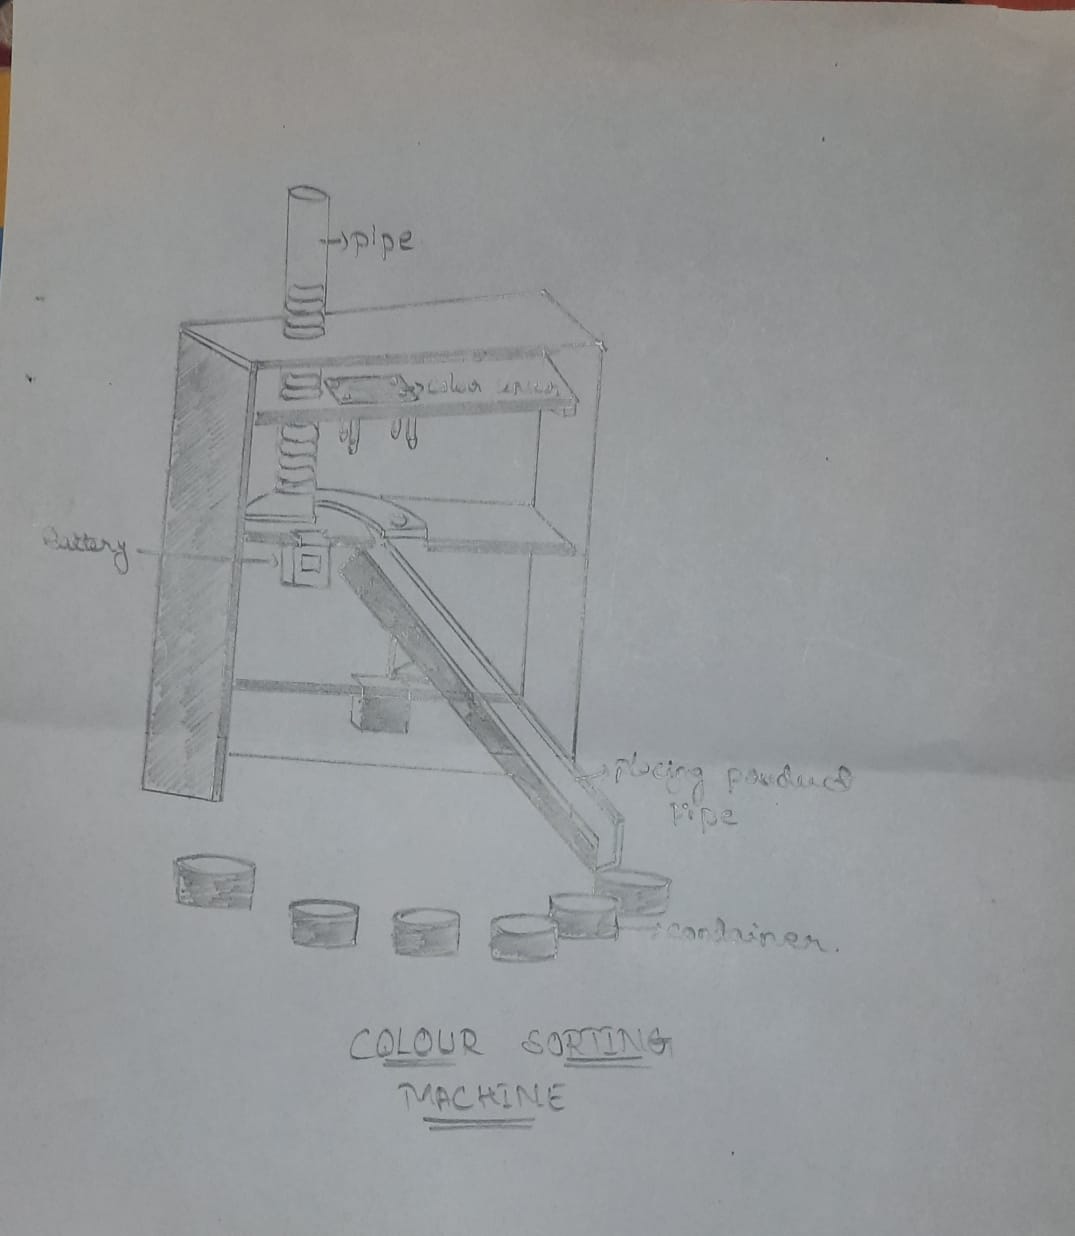 pipe
colour sensor
Battery
placing product
Pipe
container.
COLOUR SORTING
MACHINE